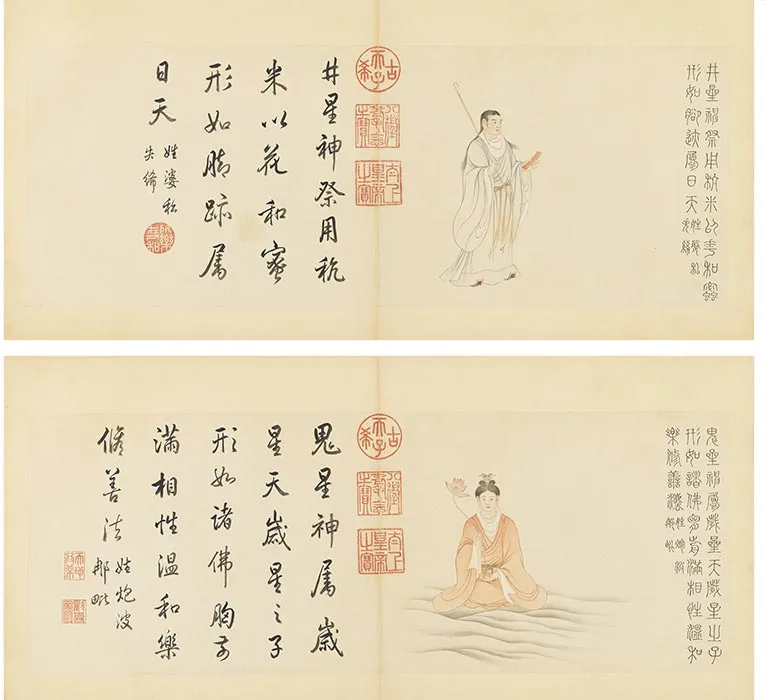 井星神祭用秔米以花和蜜
形如脚跡屬日天
姓婆私
失絺
古希天子
八徵耄念之寶
太上皇帝之寶
井星神祭用秔
米以花和蜜
形如脚跡属
日天
姓婆私
失絺
鬼星神屬歲星天歲星之子
形如諸佛胸前滿相性溫和
樂脩善法
姓炮波
那毗
古希天子
八徵耄念之寶
太上皇帝之寶
鬼星神属歲
星天歲星之子
形如诸佛胸前
滿相性温和樂
脩善法
姓炮波
那毗